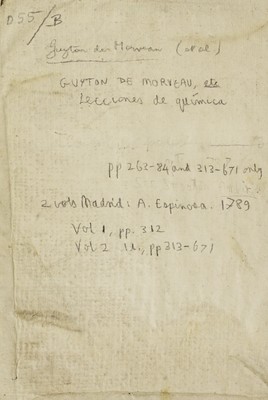 D55/B
Guyton de Morveau (et al.)
GUYTON DE MORVEAU, etc
Lecciones de química
pp 263-84 and 313-671 only
2 vols Madrid: A. Espinosa. 1789
Vol 1, pp. 312
Vol 2 pp 313-671